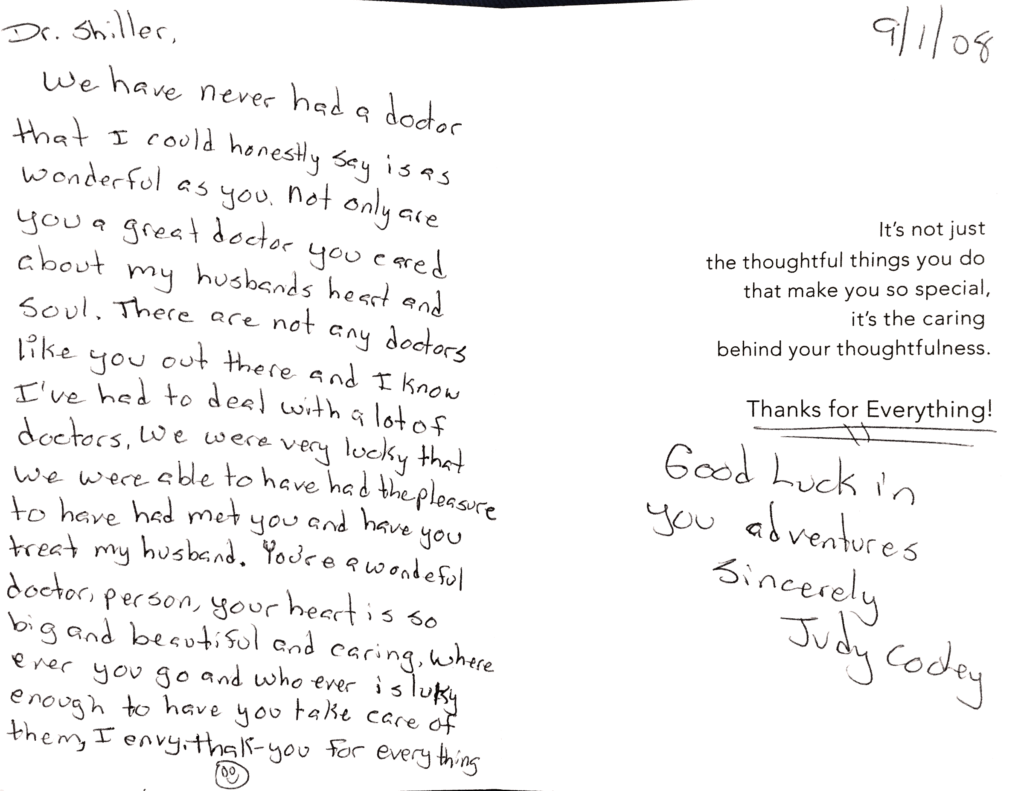 Dr. Shiller,
We have never had a doctor
that I could honestly say is as
wonderful as you. Not only are
you a great doctor you cared
about my husbands heart and
soul. There are not any doctors
like you out there and I know
I've had to deal with a lot of
doctors, We were very lucky that
we were able to have had the pleasure
to have had met you and have you
treat my husband. You're a wondeful
doctor, person, your heart is so
big and beautiful and caring, where
ever you go and who ever is luky
enough to have you take care of
them, I envy. thak-you for everything
9/1/08
It's not just
the thoughtful things you do
that make you so special,
it's the caring
behind your thoughtfulness.
Thanks for Everything!
Good Luck in
you adventures
Sincerely
Judy Codey